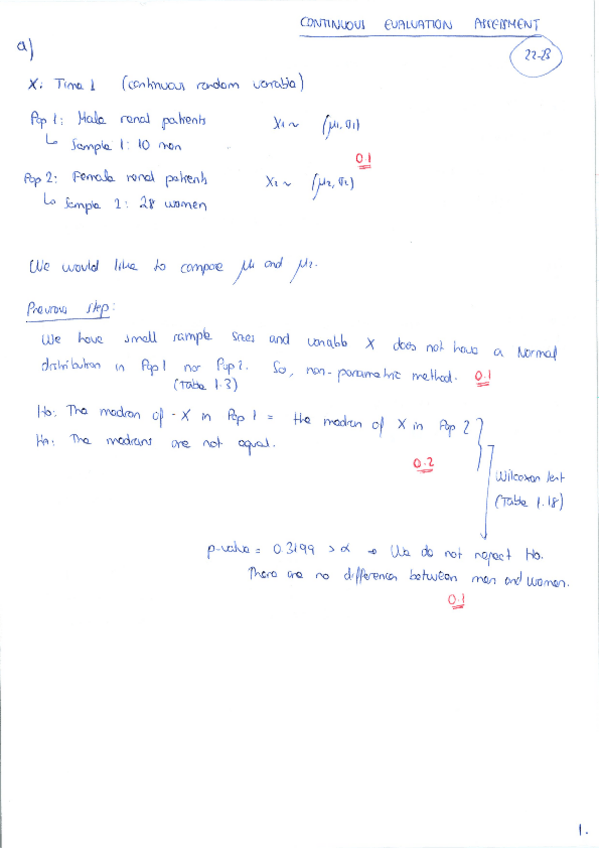 CONTINUOUS EVALUATION ASSESSMENT
22-23
a)
X: Time 1 (continuous random variable)
Pop 1: Male renal patients X₁ ~ (μ₁, σ₁)
↳ Sample 1: 10 men
0.1
Pop 2: Female renal patients X₂ ~ (μ₂, σ₂)
↳ Sample 2: 28 women
We would like to compare μ₁ and μ₂.
Previous step:
We have small sample sizes and variable X does not have a Normal
distribution in Pop 1 nor Pop 2. So, non-parametric method. 0.1
(Table 1.3)
H₀: The median of X in Pop 1 = the median of X in Pop 2
Hₐ: The medians are not equal.
0.2
Wilcoxon test
(Table 1.18)
p-value = 0.3199 > α → We do not reject H₀.
There are no differences between men and women.
0.1
1.